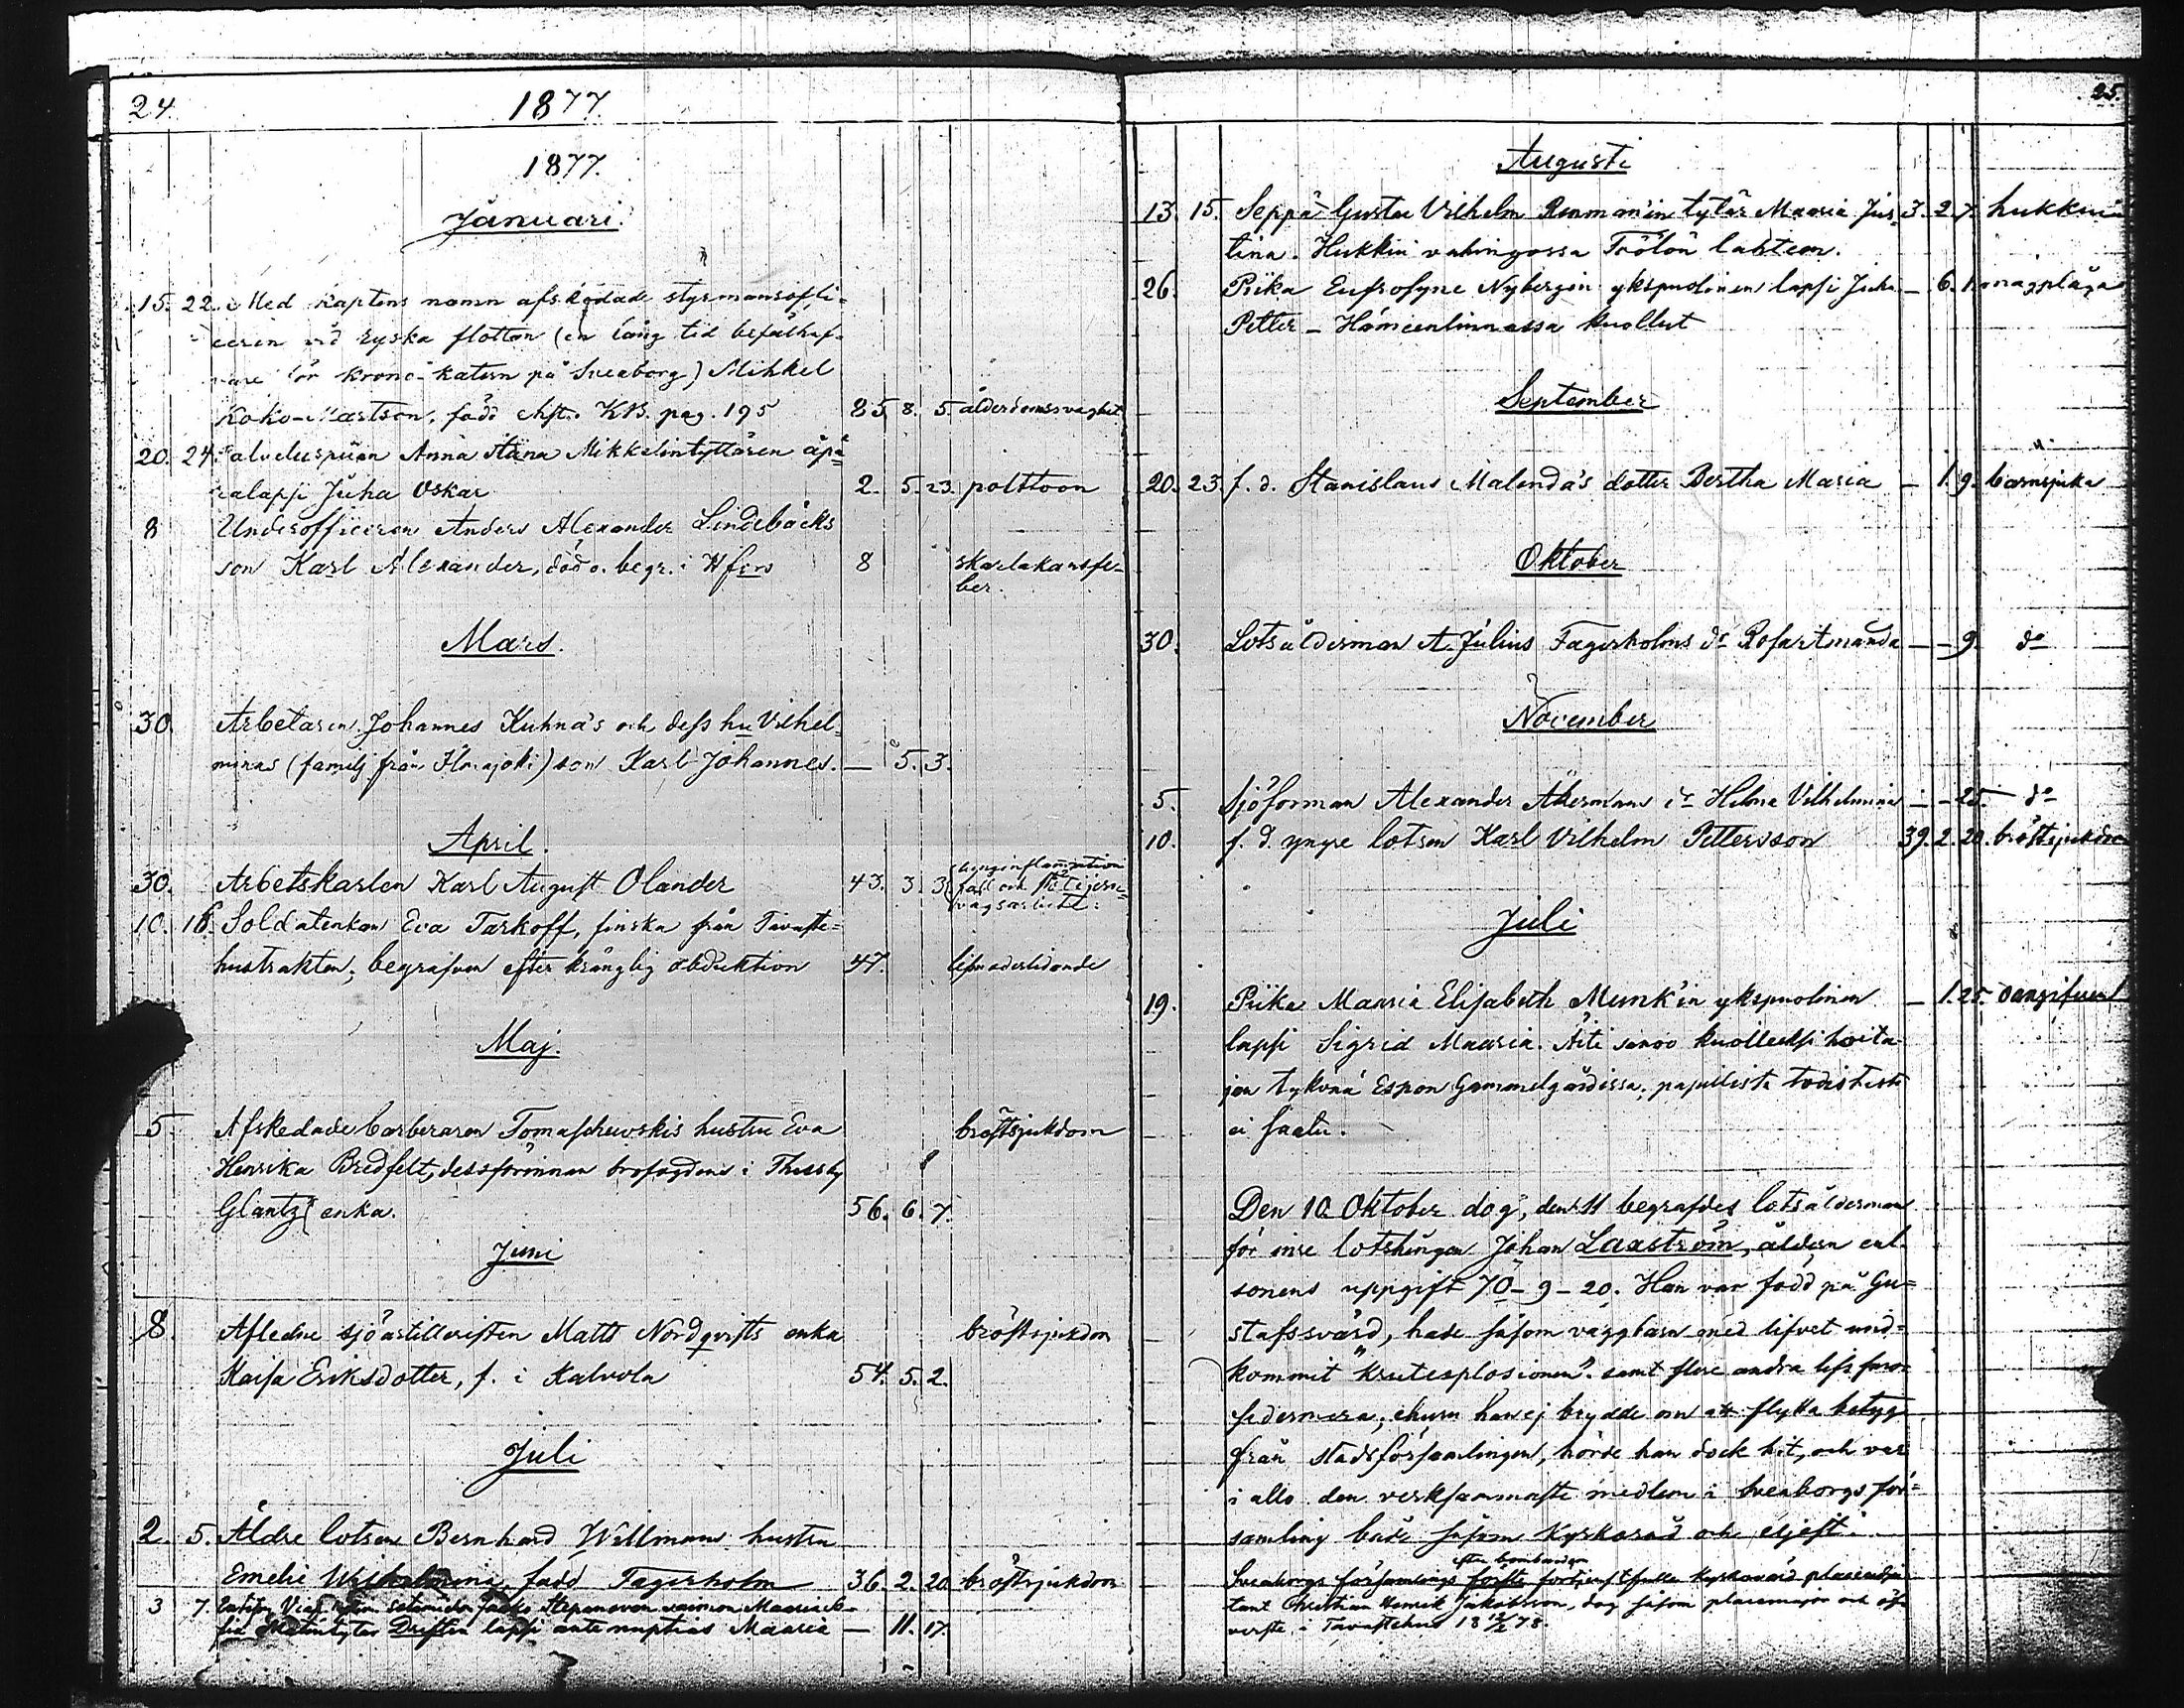 24. 1877.
1877.
Januari.
15. 22. Med kaptens namn afskedade styrmansoffi-
ceren vid ryska flottan (en lång tid befälhaf-
vare för krono-katern på Sveaborg) Mikkel
Koko-Martson, född chft. KB. pag. 195 85 8. 5. ålderdomssvaghet
20. 24. Palveluspiian Anna Stina Mikkelintyttären äpä-
rälapsi Juha Oskar 2. 5. 23. polttoon
8 Underofficeren Anders Alexander Lindebäcks
son Karl Alexander, död o. begr. i Hfors 8 skarlakansfe-
ber.
Mars.
30. Arbetaren Johannes Kuhna's och dess hu Vilhel-
minas (familj från Ilmajoki) son Karl Johannes. — 5. 3.
April.
30. Arbetskarlen Karl August Olander 43. 3. 3. lunginflammation
fall och jern-
vägsarbete.
10. 16. Soldatenkan Eva Tarkoff, finska från Tavaste-
hustrakten; begrafven efter krånglig obduktion 47. lefversiktande
Maj.
5 Afskedade barberaren Tomaschewskis hustru Eva bröstsjukdom
Henrika Bredfelt, dessförinnan brofogdens i Thessby
Glantz enka. 56. 6. 7.
Juni
8. Aflidne sjöartilleristen Matts Nordqvists enka bröstsjukdom
Kaisa Eriksdotter, f. i Kalvola 54. 5. 2.
Juli
2. 5. Äldre lotsen Bernhard Wellmans hustru
Emelie Wilhelmina, född Fagerholm 36. 2. 20. bröstsjukdom
3 7. Jaako Stepanovon vaimon Maaria So-
fia Matintytär lapsi ante nuptias Maaria — 11. 17.
25.
Augusti
13. 15. Seppä Gustav Vilhelm Renman'in tytär Maaria Jus- 3. 2. 7. hukkui
tina. Hukkui vahingossa Tölön lahteen.
26. Piika Eufrosyne Nybergin ykspuolinen lapsi Juha — 6. 1. magplåga
Petter — Hämeenlinnassa kuollut
September
20. 23. f. d. Stanislaus Malenda's dotter Bertha Maria — 1. 9. barnsjuka
Oktober
30. Lotsålderman A. Julius Fagerholms dr Rosa Amanda — — 9. do
November
5. Sjöforman Alexander Åkermans dr Helma Vilhelmina — — 25. do
10. f. d. yngre lotsen Karl Vilhelm Pettersson 39. 2. 20. bröstsjukdom
Juli
19. Piika Maaria Elisabeth Munk'in ykspuolinen — 1. 25. oangifven
lapsi Sigrid Maaria. Äiti sanoo kuolleeksi hoita-
jan tykönä Espon Gammelgårdissa; papillista todistusta
ei saatu.
Den 10. Oktober dog, den 11 begrafdes lotsålderman
för inre lotsningen Johan Laxström, åldern enl.
sonens uppgift 70—9—20. Han var född på Gu-
stafssvärd, hade såsom vaggbarn med lifvet und-
kommit "krutexplosionen" samt flere andra lifsfaror
sedermera; ehuru han ej brydde om att flytta betyg
från stadsförsamlingen, hörde han dock hit, och var
i allo den verksammaste medlem i Sveaborgs för-
samling både såsom kyrkoråd och eljest.
efter bombarden
Sveaborgs församlings förste förtjenstfulle kyrkovärd placeadju-
tant Christian Henrik Jakobsson, dog såsom placemajor och öf-
verste i Tavastehus 18 12/2 78.